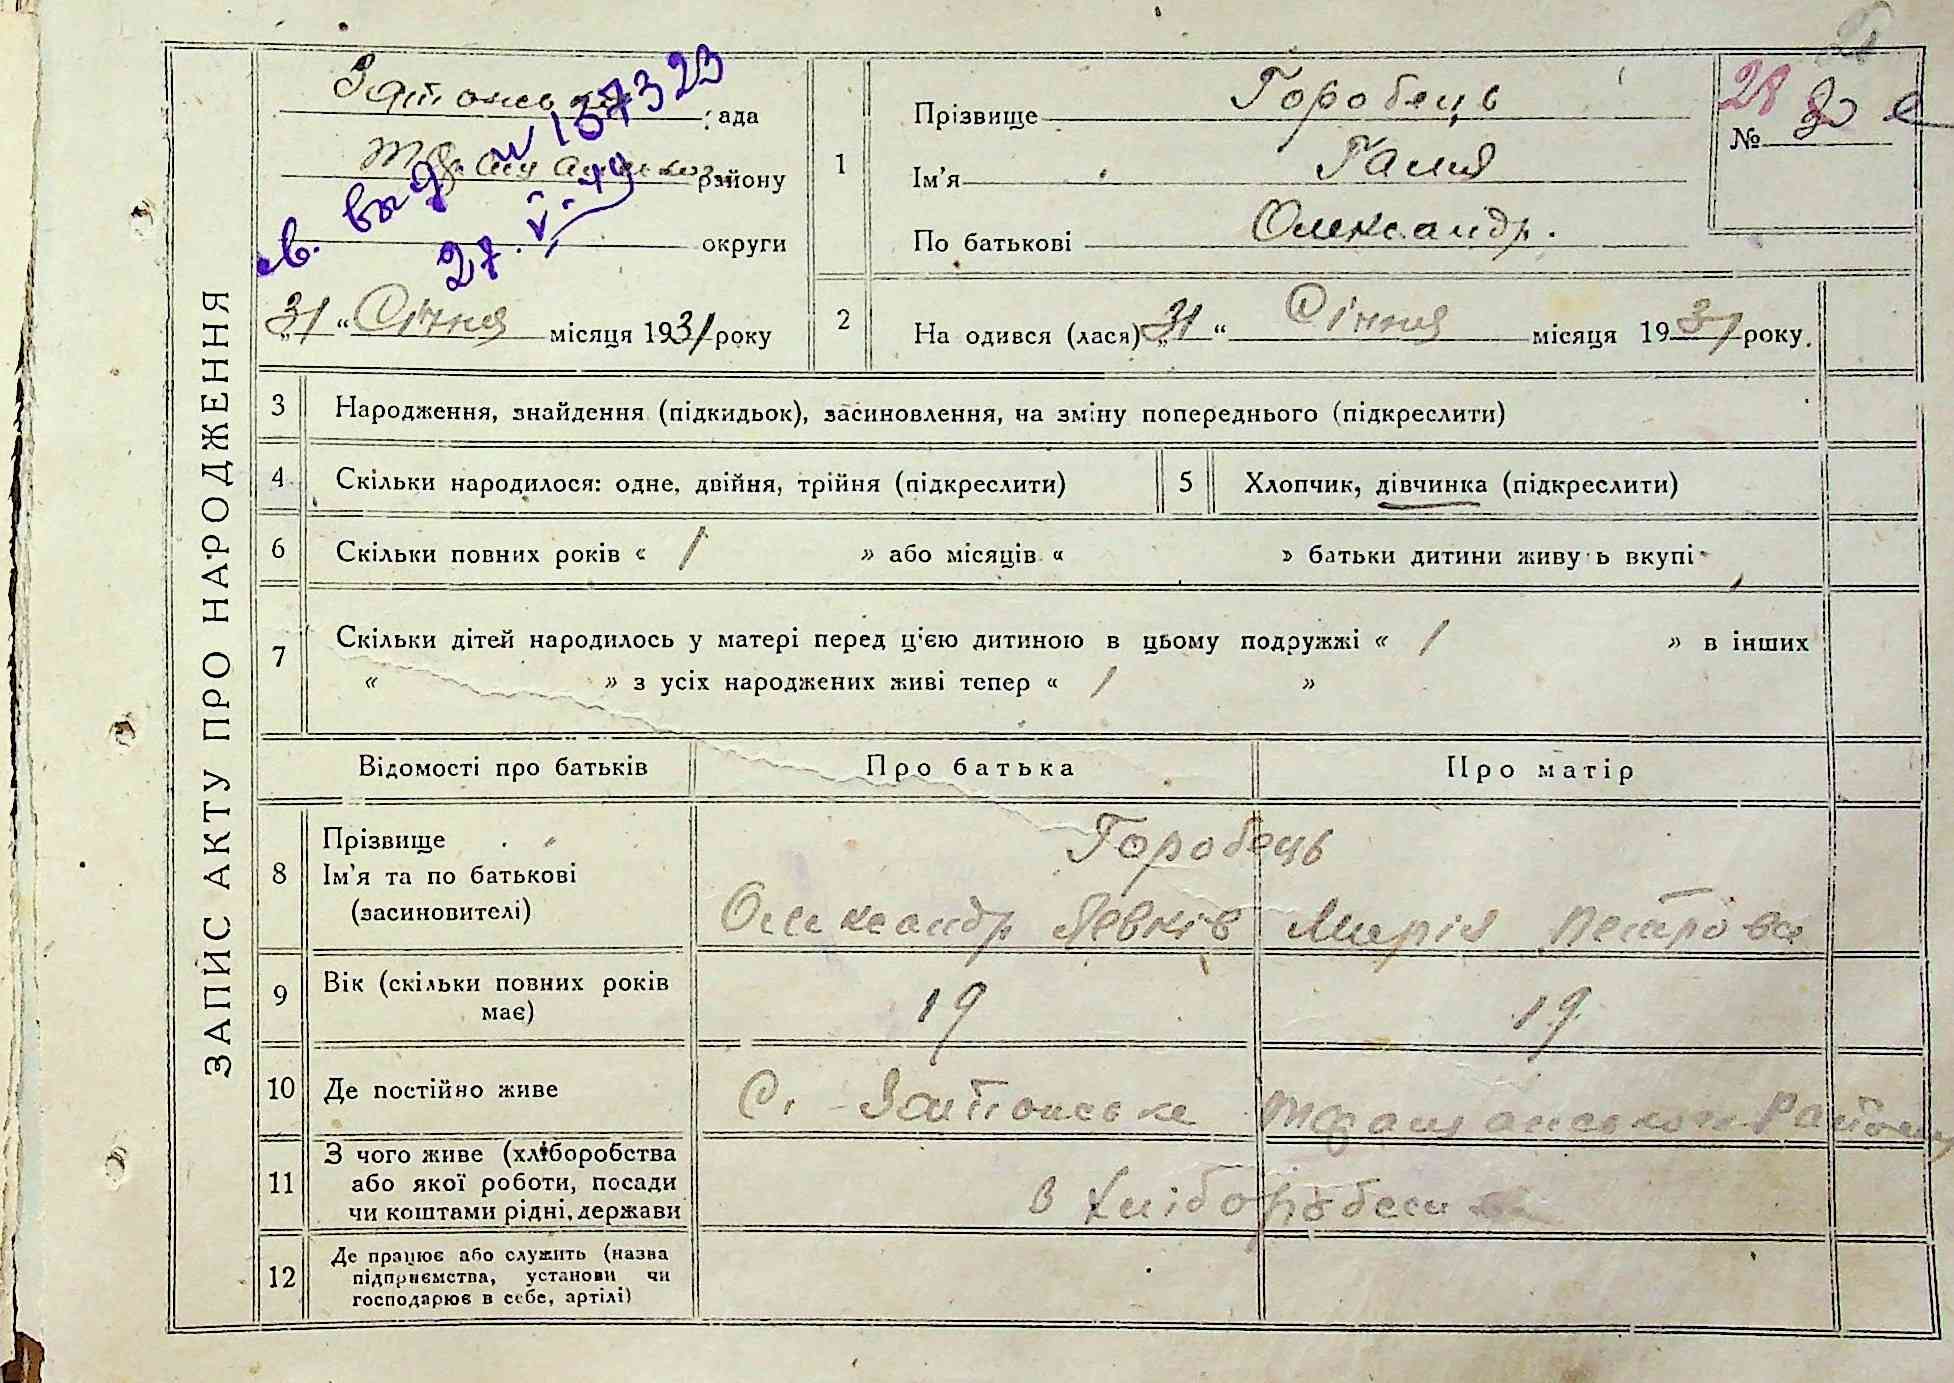 ЗАПИС АКТУ ПРО НАРОДЖЕННЯ
Затонська рада
району
округи
св. выд. № 157323
27. V-49
„31“ Січня місяця 1931 року
1
Прізвище Горобець
Ім'я Галя
По батькові Олександр.
28
№ 30
2
На одився (лася) „31“ Січня місяця 1931 року.
3
Народження, знайдення (підкидьок), засиновлення, на зміну попереднього (підкреслити)
4
Скільки народилося: одне, двійня, трійня (підкреслити)
5
Хлопчик, дівчинка (підкреслити)
6
Скільки повних років « 1 » або місяців « » батьки дитини живу ь вкупі
7
Скільки дітей народилось у матері перед ц'єю дитиною в цьому подружжі « 1 » в інших
« » з усіх народжених живі тепер « 1 »
Відомості про батьків
Про батька
Про матір
8
Прізвище
Ім'я та по батькові
(засиновителі)
Горобець
Олександр Левків
Марія Петрова
9
Вік (скільки повних років
має)
19
19
10
Де постійно живе
С. Затонське
Району
11
З чого живе (хліборобства
або якої роботи, посади
чи коштами рідні, держави
з Хліборобства
12
Де працює або служить (назва
підприємства, установи чи
господарює в себе, артілі)